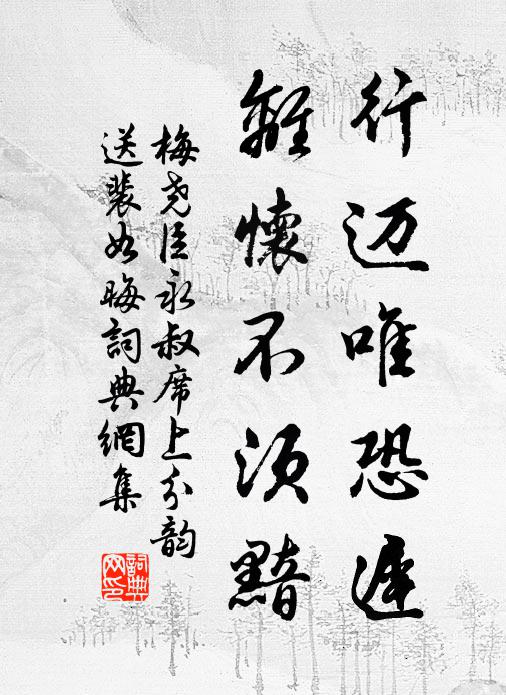 行迈唯恐遲
離懷不須黯
梅尧臣永叔席上分韵
送裴如晦詞典網集
詞典
网印